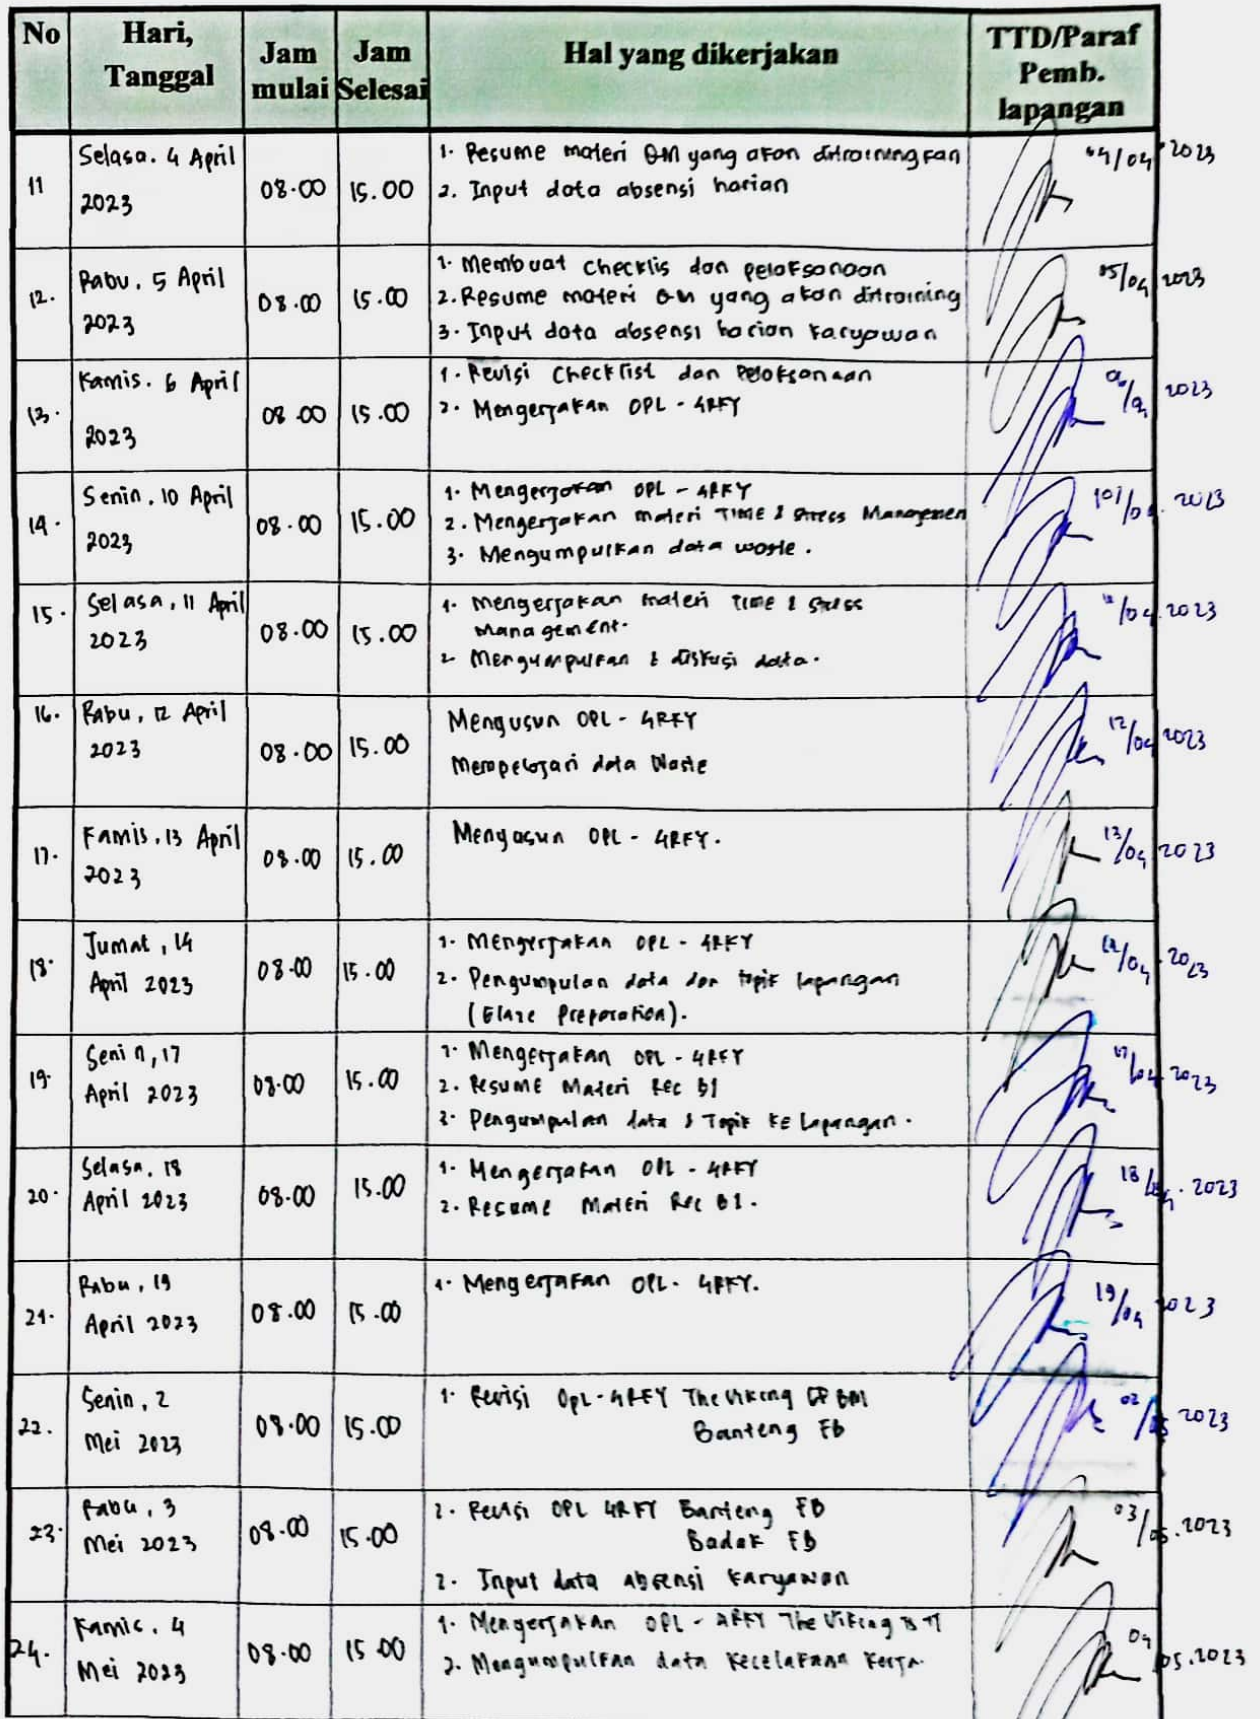 No Hari, Tanggal Jam mulai Jam Selesai Hal yang dikerjakan TTD/Paraf Pemb. lapangan
11 Selasa. 4 April 2023 08.00 15.00
1. Resume materi QM yang akan ditrainingkan
2. Input data absensi harian
04/04 2023
12. Rabu. 5 April 2023 08.00 15.00
1. Membuat checklis dan pelaksanaan
2. Resume materi QM yang akan ditraining
3. Input data absensi harian karyawan
05/04 2023
13. Kamis. 6 April 2023 08.00 15.00
1. Revisi Checklist dan Pelaksanaan
2. Mengerjakan OPL - 4RKY
06/04 2023
14. Senin. 10 April 2023 08.00 15.00
1. Mengerjakan OPL - 4RKY
2. Mengerjakan materi TIME & Stress Managemen
3. Mengumpulkan data waste.
10/04. 2023
15. Selasa, 11 April 2023 08.00 15.00
1. Mengerjakan materi TIME & Stress
Management.
2. Mengumpulkan & diskusi data.
11/04. 2023
16. Rabu, 12 April 2023 08.00 15.00
Mengusun OPL - 4RKY
Mempelajari data Waste
12/04 2023
17. Kamis, 13 April 2023 08.00 15.00
Menyusun OPL - 4RKY.
13/04 2023
18. Jumat, 14 April 2023 08.00 15.00
1. Mengerjakan OPL - 4RKY
2. Pengumpulan data dan topik lapangan
(Glaze Preparation).
14/04 . 2023
19. Senin, 17 April 2023 08.00 15.00
1. Mengerjakan OPL - 4RKY
2. Resume Materi Rec B1
3. Pengumpulan data & Topik ke Lapangan.
17/04 2023
20. Selasa, 18 April 2023 08.00 15.00
1. Mengerjakan OPL - 4RKY
2. Resume Materi Rec B1.
18/04. 2023
21. Rabu, 19 April 2023 08.00 15.00
1. Mengerjakan OPL - 4RKY.
19/04 2023
22. Senin, 2 Mei 2023 08.00 15.00
1. Revisi OPL - 4RKY The Viking BM
Banteng FB
02/05 2023
23. Rabu, 3 Mei 2023 08.00 15.00
1. Revisi OPL 4RKY Banteng FB
Badak FB
2. Input data absensi karyawan
03/05. 2023
24. Kamis. 4 Mei 2023 08.00 15.00
1. Mengerjakan OPL - 4RKY The Viking
2. Mengumpulkan data kecelakaan kerja.
04/05.2023